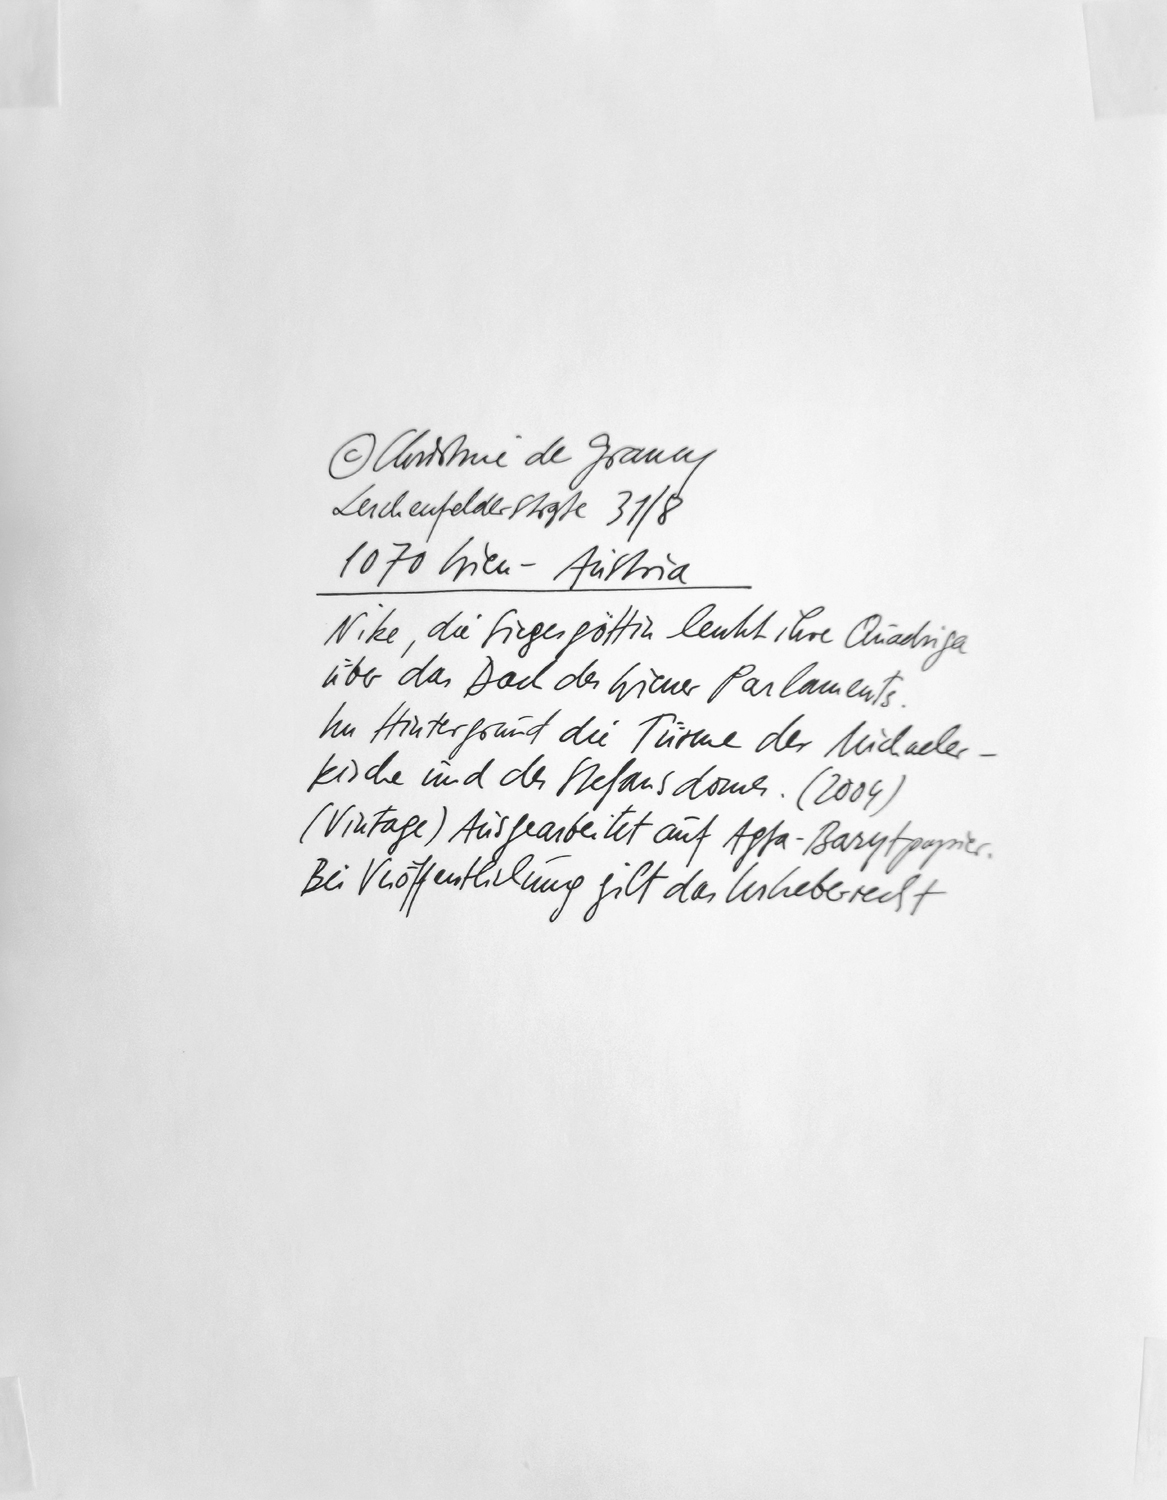 © Christine de Grancy
Lerchenfelderstraße 31/8
1070 Wien - Austria
Nike, die Siegesgöttin lenkt ihre Quadriga
über das Dach des Wiener Parlaments.
Im Hintergrund die Türme der Michaeler-
kirche und des Stefansdomes. (2004)
(Vintage) Ausgearbeitet auf Agfa-Barytpapier.
Bei Veröffentlichung gilt das Urheberrecht